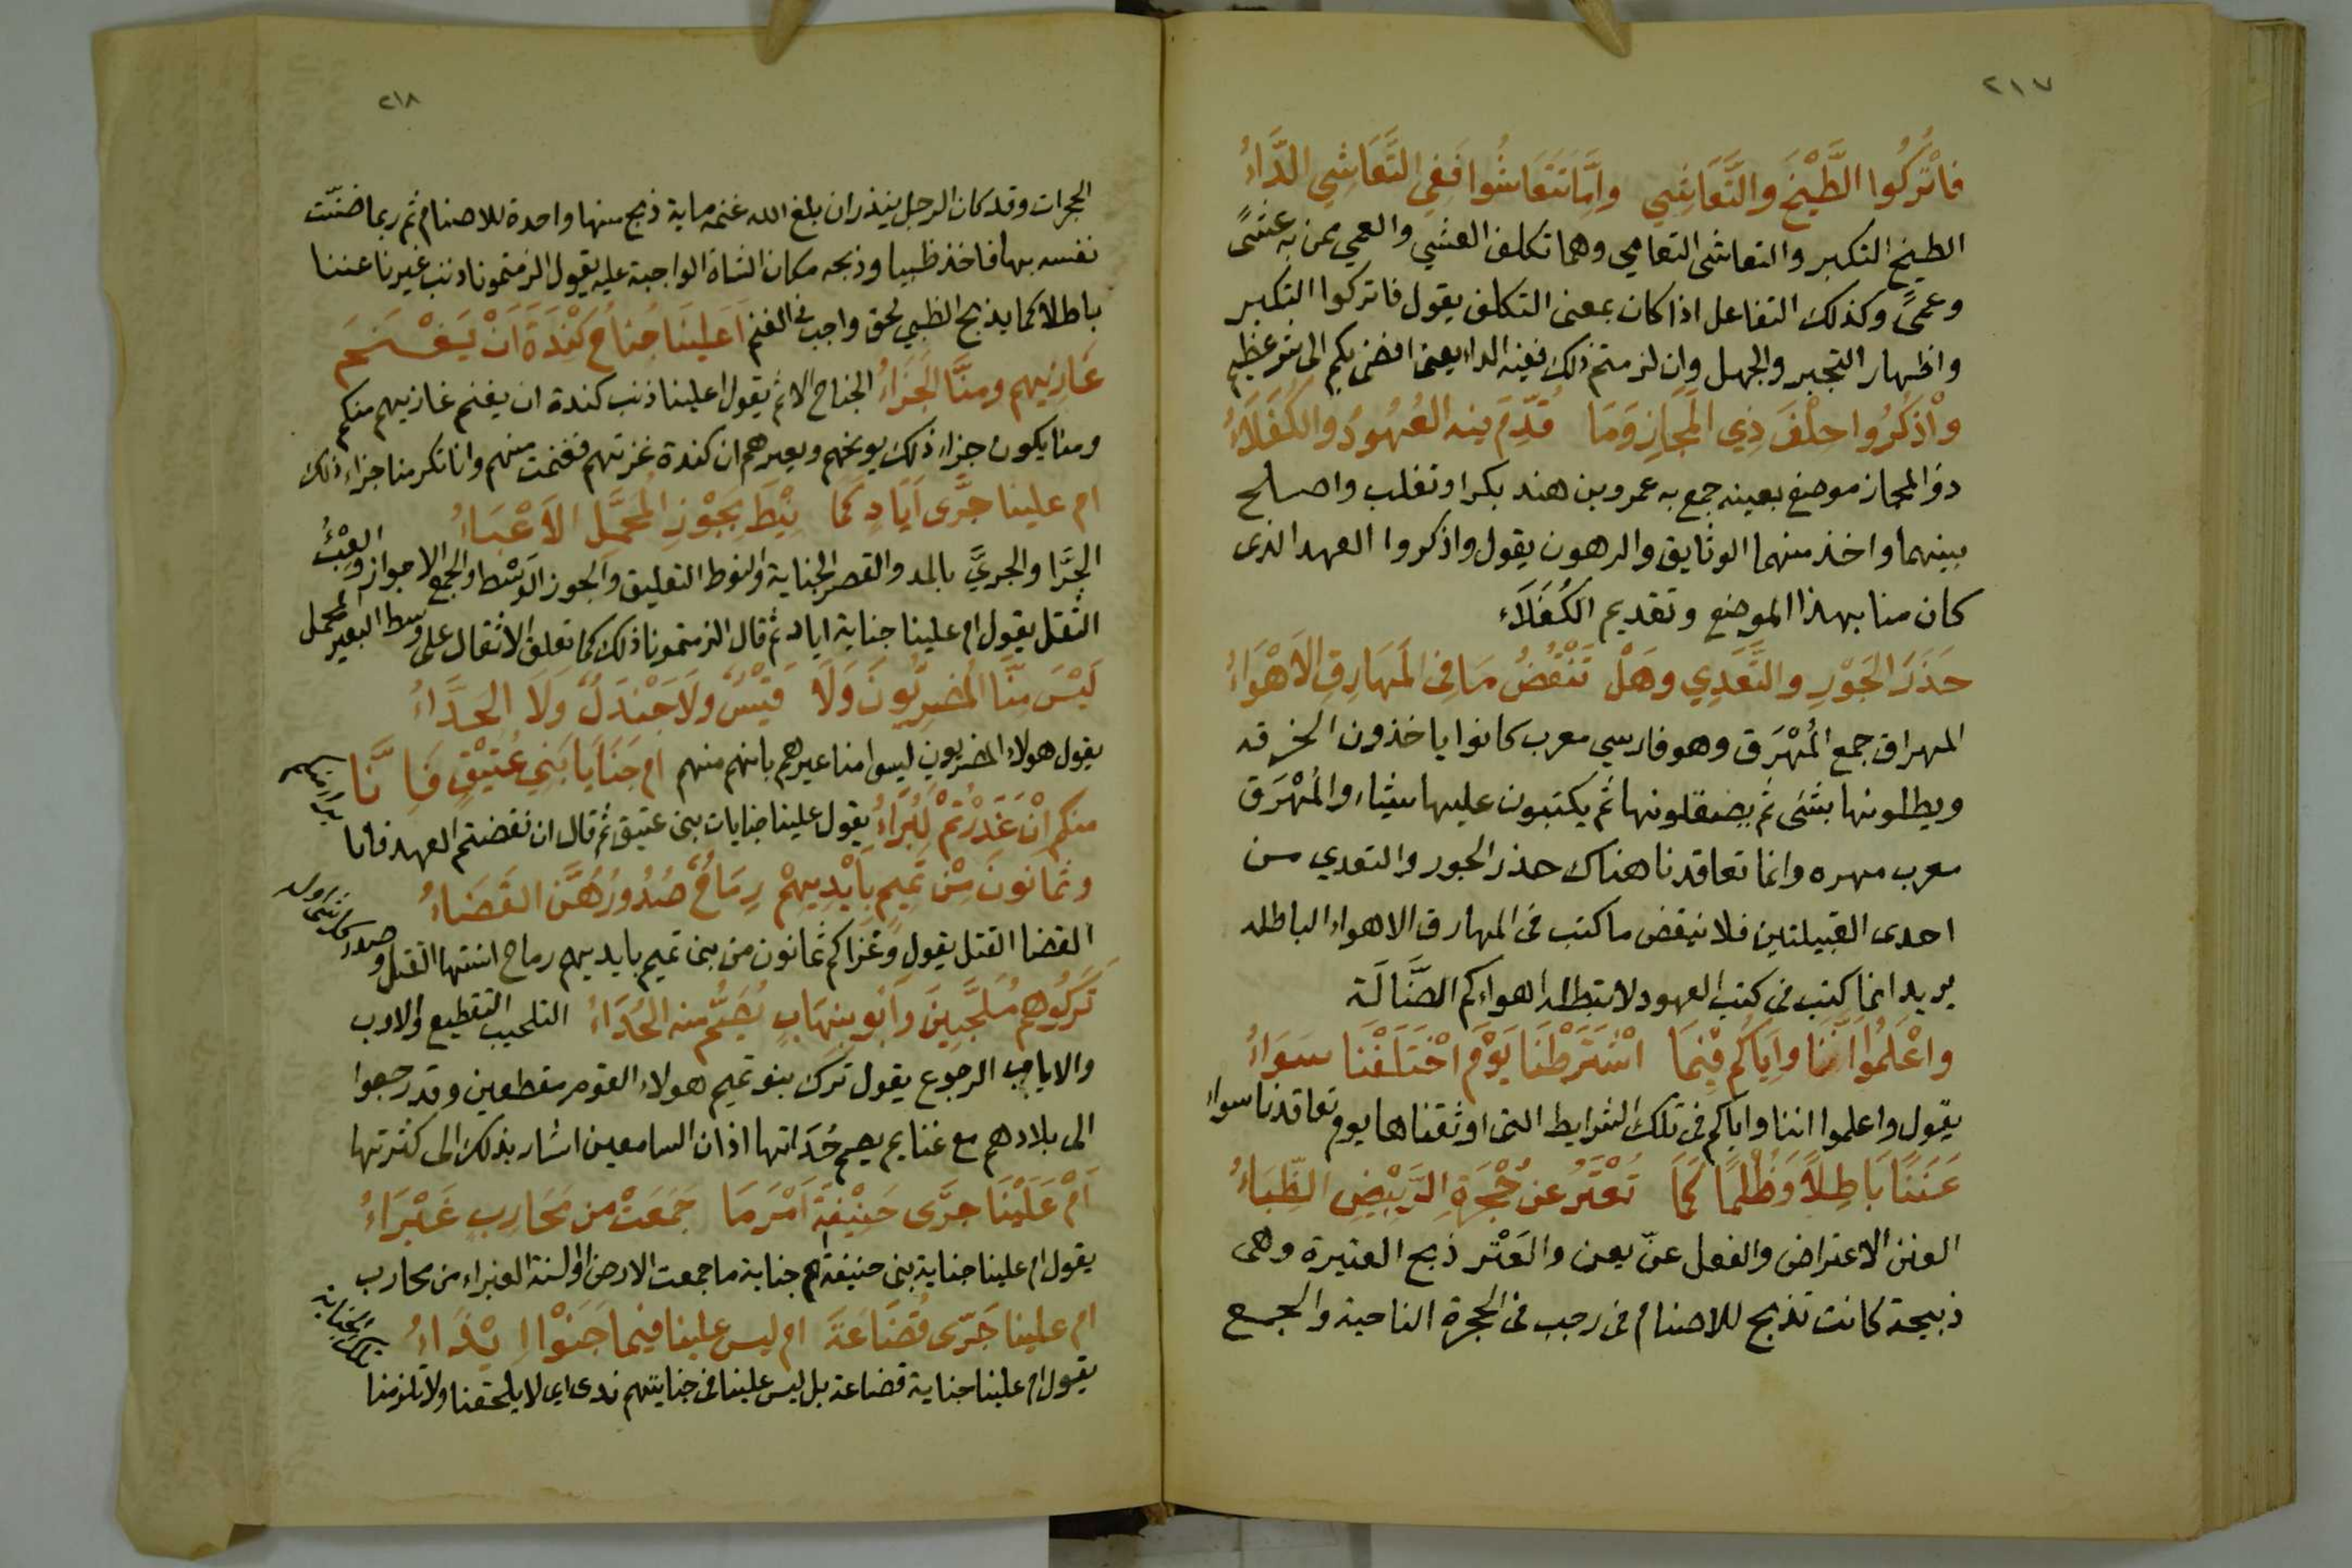 ٢١٧
فاتْرُكُوا الطَّيْخَ والتَّعَاشِي وإمَّا تَتَعَاشُوا فَفِي التَّعَاشِي الدَّاءُ
الطيخ التكبر والتعاشى التعامي وهما تكلف العشي والعمي ممن به عشًى
وعمًى وكذلك التفاعل اذا كان بمعنى التكلف يقول فاتركوا التكبر
واظهار التجبر والجهل وان لزمتم ذلك ففيه الداء يعنى افضى بكم الى شر عظيم
وٱذكُرُوا حِلْفَ ذِي المَجَازِ وَمَا قُدِّمَ فيه العُهُودُ والكُفَلَاءُ
ذو المجاز موضع بعينه جمع به عمرو بن هند بكرا وتغلب واصلح
بينهما واخذ منهما الوثايق والرهون يقول واذكروا العهد الذى
كان منا بهذا الموضع وتقديم الكُفَلَاء
حَذَرَ الجَوْرِ والتَّعَدِي وهَلْ تَنْقُضُ مَا في المَهَارِقِ الاَهْوَاءُ
المهراق جمع المُهْرَق وهو فارسي معرب كانوا ياخذون الخرقه
ويطلونها بشئ ثم يصقلونها ثم يكتبون عليها شيئا، والمُهْرَق
معرب مهره وانما تعاقدنا هناك حذر الجور والتعدي من
احدى القبيلتين فلا ينقض ما كتب فى المهارق الاهواء الباطله
يريد انما كتب فى كتب العهود لا تبطله اهواءكم الضَّالَة
واعْلَمُوا اَنَّنَا وإيَاكُم فِيْمَا اشْتَرَطْنَا يَوْمَ اخْتَلَفْنَا سَوَاءُ
يقول واعلموا اننا واياكم فى تلك الشرايط التى اوثقناها يوم تعاقدنا سواء
عَنَنًا بَاطِلاً وَظُلْمًا كَمَا تُعْتَرُ عن حُجْرَةِ الرَّبِيْضِ الظِّبَاءُ
العنن الاعتراض والفعل عنّ يعن والعَتْر ذبح العتيرة وهى
ذبيحة كانت تذبح للاصنام فى رجب فى الحجرة الناحية والجمع
٢١٨
الحجرات وقد كان الرجل ينذر ان بلغ الله غنمه ماية ذبح منها واحدة للاصنام ثم ربما ضنّت
نفسه بها فاخذ ظبيا وذبحه مكان الشاة الواجبة عليه يقول الزمتمونا ذنب غيرنا عننا
باطلا كما يذبح الظبي لحق واجب فى الغنم اَعَلينَا جُناحُ كِنْدَةَ اَنْ يَغْـنَـمَ
غَازِيهم ومنَّا الجَزَاءُ الجناح الاثم يقول اعلينا ذنب كندة ان يغنم غازيهم منكم
ومنا يكون جزاء ذلك يوبخهم ويعيرهم ان كندة غزتهم فغنمت منهم وانا تكرمنا جزاء ذلك
ام علينا جَرَّى اَيَادٍ كَمَا نِيْطَ بِجَوْزِ المُحَمَّلِ الاَعْبَاءُ
الجَرَّا والجريَّ بالمد والقصر الجناية والنوط التعليق والجوز الوَسَط والجمع الاجواز والعِبْئُ
الثقل يقول ام علينا جناية اياد ثم قال الزمتمونا ذلك كما تعلق الاثقال على وسط البعير المحمل
لَيْسَ مِنَّا المُضرِبُونَ وَلَا قَيْسٌ ولَا جَنْدَلٌ وَلَا الحَدَّاءُ
يقول هولاء المضربون ليسوا منا عيرهم بانهم منهم ام جَنَايَا بَنِي عُتَيْقٍ فَإِنَّا
منكم انْ غَدَرْتُمْ لَبُرَآءُ يقول علينا جنايات بنى عتيق ثم قال ان نقضتم العهد فانا
براء منكم
وثَمَانونَ مِنْ تَمِيم بأَيْدِيهِمْ رِمَاحٌ صُدُورُهُنَّ القَضَاءُ
القضا القتل يقول وغزاكم ثمانون من بنى تميم بايديهم رماح اسنتها القتل وصدر
كل شئ اوله
تَرَكُوهم مُلَحَّبِينَ وآبُو بنِهَابٍ يُصَمُّ منه الحُدَاءُ التلحيب التقطيع والاوب
والاياب الرجوع يقول ترك بنو تميم هولاء القوم مقطعين وقد رجعوا
الى بلادهم مع غنايم يصم حُدَاتها اذان السامعين اشار بذلك الى كثرتها
اَمْ عَلَيْنَا جرَّى حَنِيْفَةَ اَمْرَ مَا جَمَعَتْ من مُحَارِبٍ غَبْرَاءُ
يقول ام علينا جناية بنى حنيفة ام جناية ما جمعت الارض او السنة الغبراء من محارب
ام علينا جَرّى قُضَاعَةَ ام ليس علينا فيما جَنَوْا اِنْدَاءُ
يقول ام علينا جناية قضاعة بل ليس علينا فى جنايتهم ندى اى لا يلحقنا ولا تلزمنا
تلك الجناية